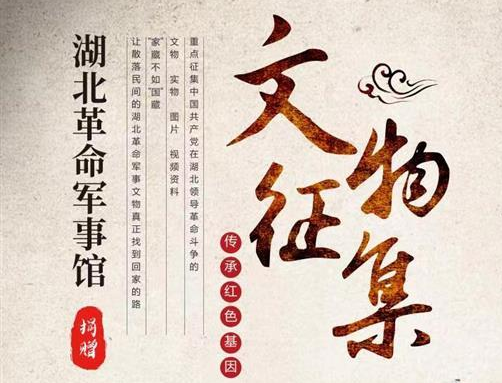 文物征集
传承红色基因
重点征集中国共产党在湖北领导革命斗争的
文物 实物 图片 视频资料
“家”藏不如“国”藏
让散落民间的湖北革命军事文物真正找到回家的路
湖北革命军事馆
捐赠